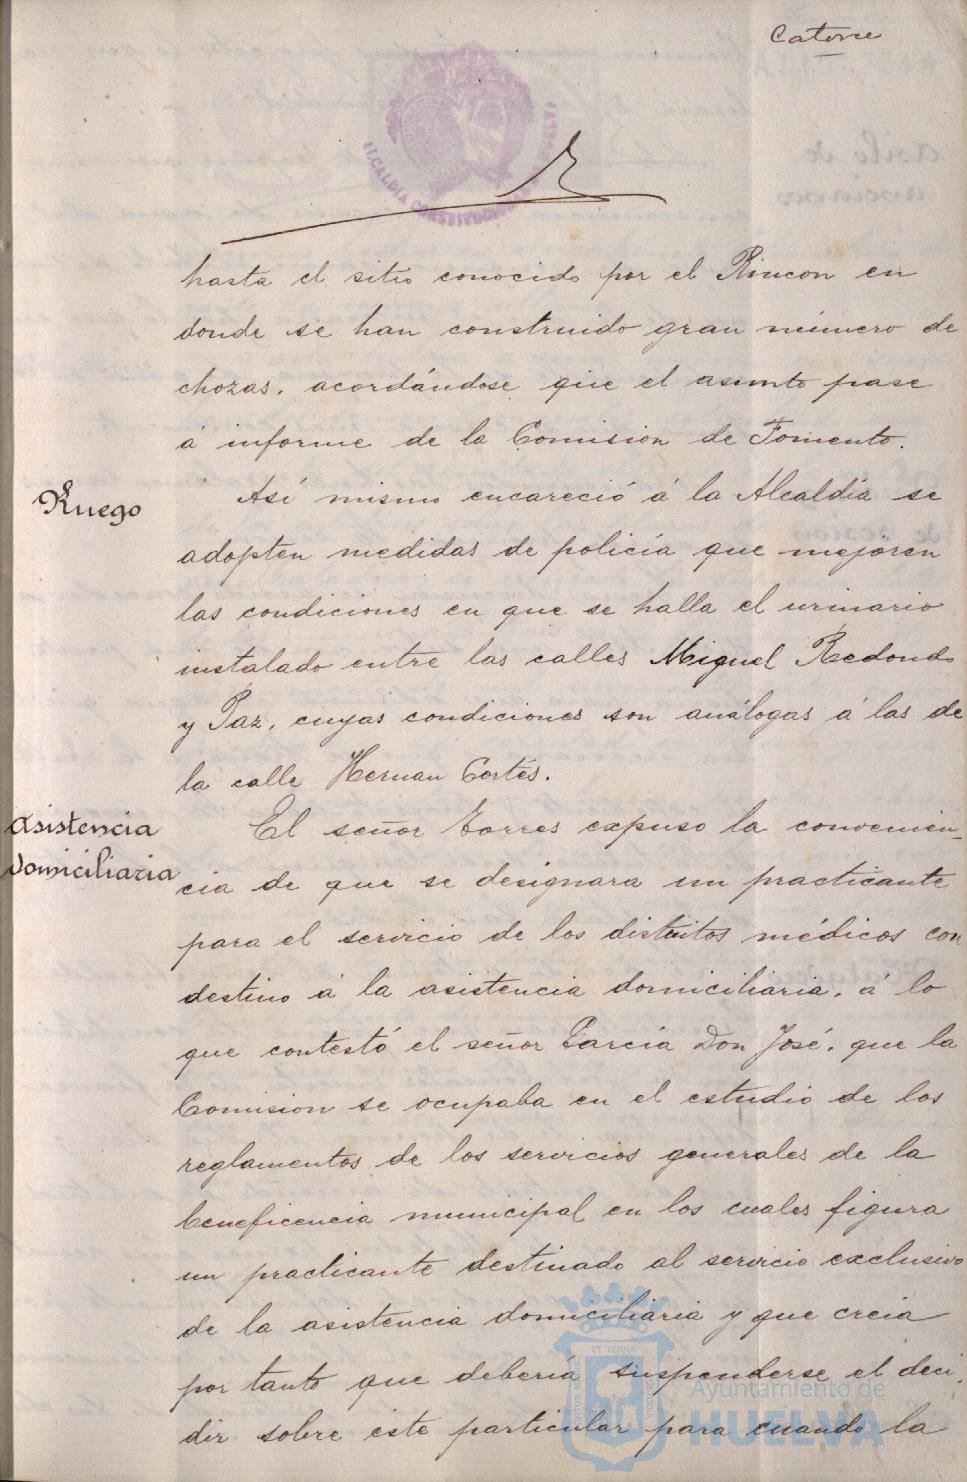 Catorce
ALCALDIA CONSTITUCIONAL DE
hasta el sitio conocido por el Rincon en
donde se han construido gran número de
chozas, acordándose que el asunto pase
á informe de la Comision de Fomento.
Ruego
Así mismo encareció á la Alcaldía se
adopten medidas de policía que mejoren
las condiciones en que se halla el urinario
instalado entre las calles Miguel Redondo
y Paz, cuyas condiciones son análogas á las de
la calle Hernan Cortés.
Asistencia
domiciliaria
El señor Torres expuso la convenien-
cia de que se designara un practicante
para el servicio de los distritos médicos con
destino á la asistencia domiciliaria, á lo
que contestó el señor García Don José, que la
Comision se ocupaba en el estudio de los
reglamentos de los servicios generales de la
beneficencia municipal en los cuales figura
un practicante destinado al servicio exclusivo
de la asistencia domiciliaria y que creia
por tanto que debería suspenderse el deci-
dir sobre este particular para cuando la
Ayuntamiento de
HUELVA